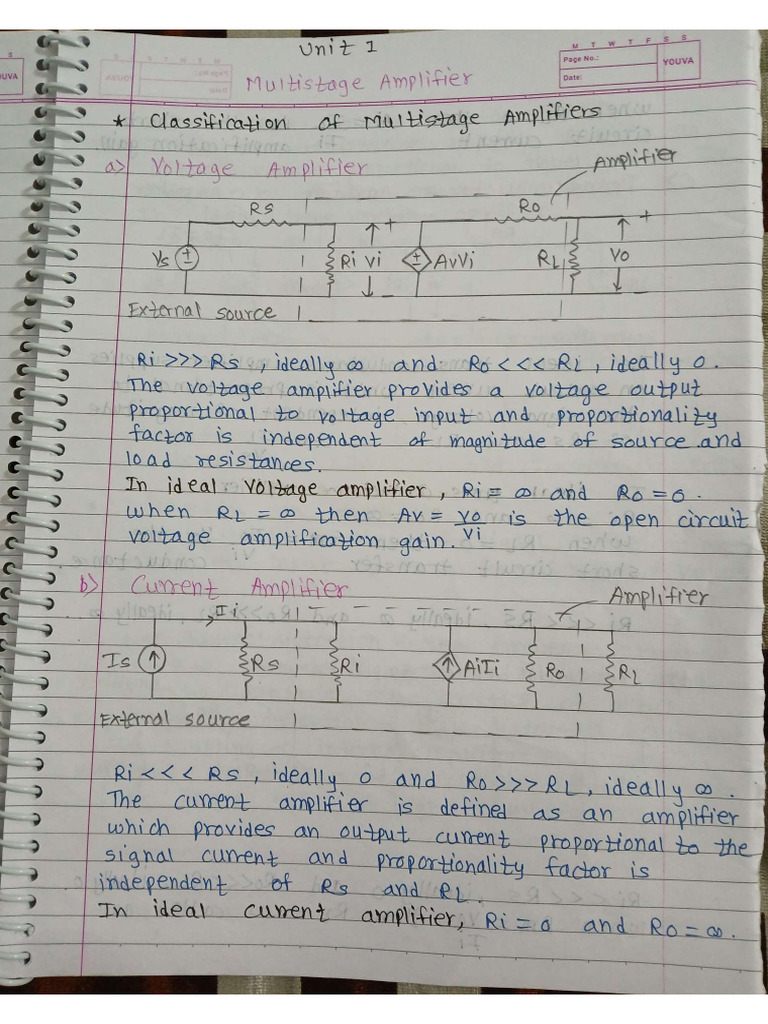 Unit 1
M T W T F S S
Page No.:
Date:
YOUVA
Multistage Amplifier
* Classification of Multistage Amplifiers
a) Voltage Amplifier
Amplifier
Rs
Ro
+
+
Vs
±
Ri
Vi
±
AvVi
RL
Vo
External source
Ri >>> Rs , ideally ∞ and Ro <<< RL , ideally 0.
The voltage amplifier provides a voltage output
proportional to voltage input and proportionality
factor is independent of magnitude of source and
load resistances.
In ideal voltage amplifier , Ri = ∞ and Ro = 0 .
when RL = ∞ then Av = Vo/Vi is the open circuit
voltage amplification gain.
b) Current Amplifier
Amplifier
Ii
Is
Rs
Ri
AiIi
Ro
RL
External source
Ri <<< Rs , ideally 0 and Ro >>> RL , ideally ∞ .
The current amplifier is defined as an amplifier
which provides an output current proportional to the
signal current and proportionality factor is
independent of Rs and RL.
In ideal current amplifier, Ri = 0 and Ro = ∞.